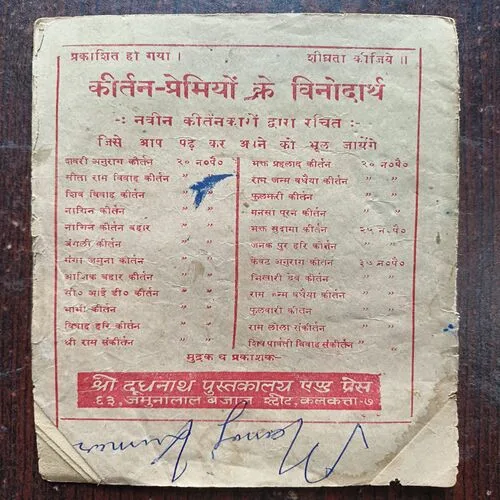 प्रकाशित हो गया । शीघ्रता कीजिये ॥
कीर्तन-प्रेमियों के विनोदार्थ
-: नवीन कीर्तनकारों द्वारा रचित :-
जिसे आप पढ़ कर अपने को भूल जायेंगे
शबरी अनुराग कीर्तन २० न०पै०
सीता राम विवाह कीर्तन " "
शिव विवाह कीर्तन " "
नागिन कीर्तन " "
नागिन कीर्तन बहार " "
जंगली कीर्तन " "
गंगा जमुना कीर्तन " "
आशिक बहार कीर्तन " "
सी० आई डी० कीर्तन " "
भाभी कीर्तन " "
विवाह हरि कीर्तन " "
श्री राम संकीर्तन " "
भक्त प्रहलाद कीर्तन २० न०पै०
राम जन्म बधैया कीर्तन " "
फुलझरी कीर्तन " "
मनसा पूरन कीर्तन " "
भक्त सुदामा कीर्तन २५ न०पै०
जनक पुर हरि कीर्तन " "
केवट अनुराग कीर्तन ३७ न०पै०
भिखारी देव कीर्तन " "
राम जन्म बधैया कीर्तन " "
फुलवारी कीर्तन " "
राम लीला संकीर्तन " "
शिव पार्वती विवाह संकीर्तन " "
मुद्रक व प्रकाशक-
श्री दूधनाथ पुस्तकालय एण्ड प्रेस
६३, जमुनालाल बजाज स्ट्रीट, कलकत्ता-७
Manoj Kumar